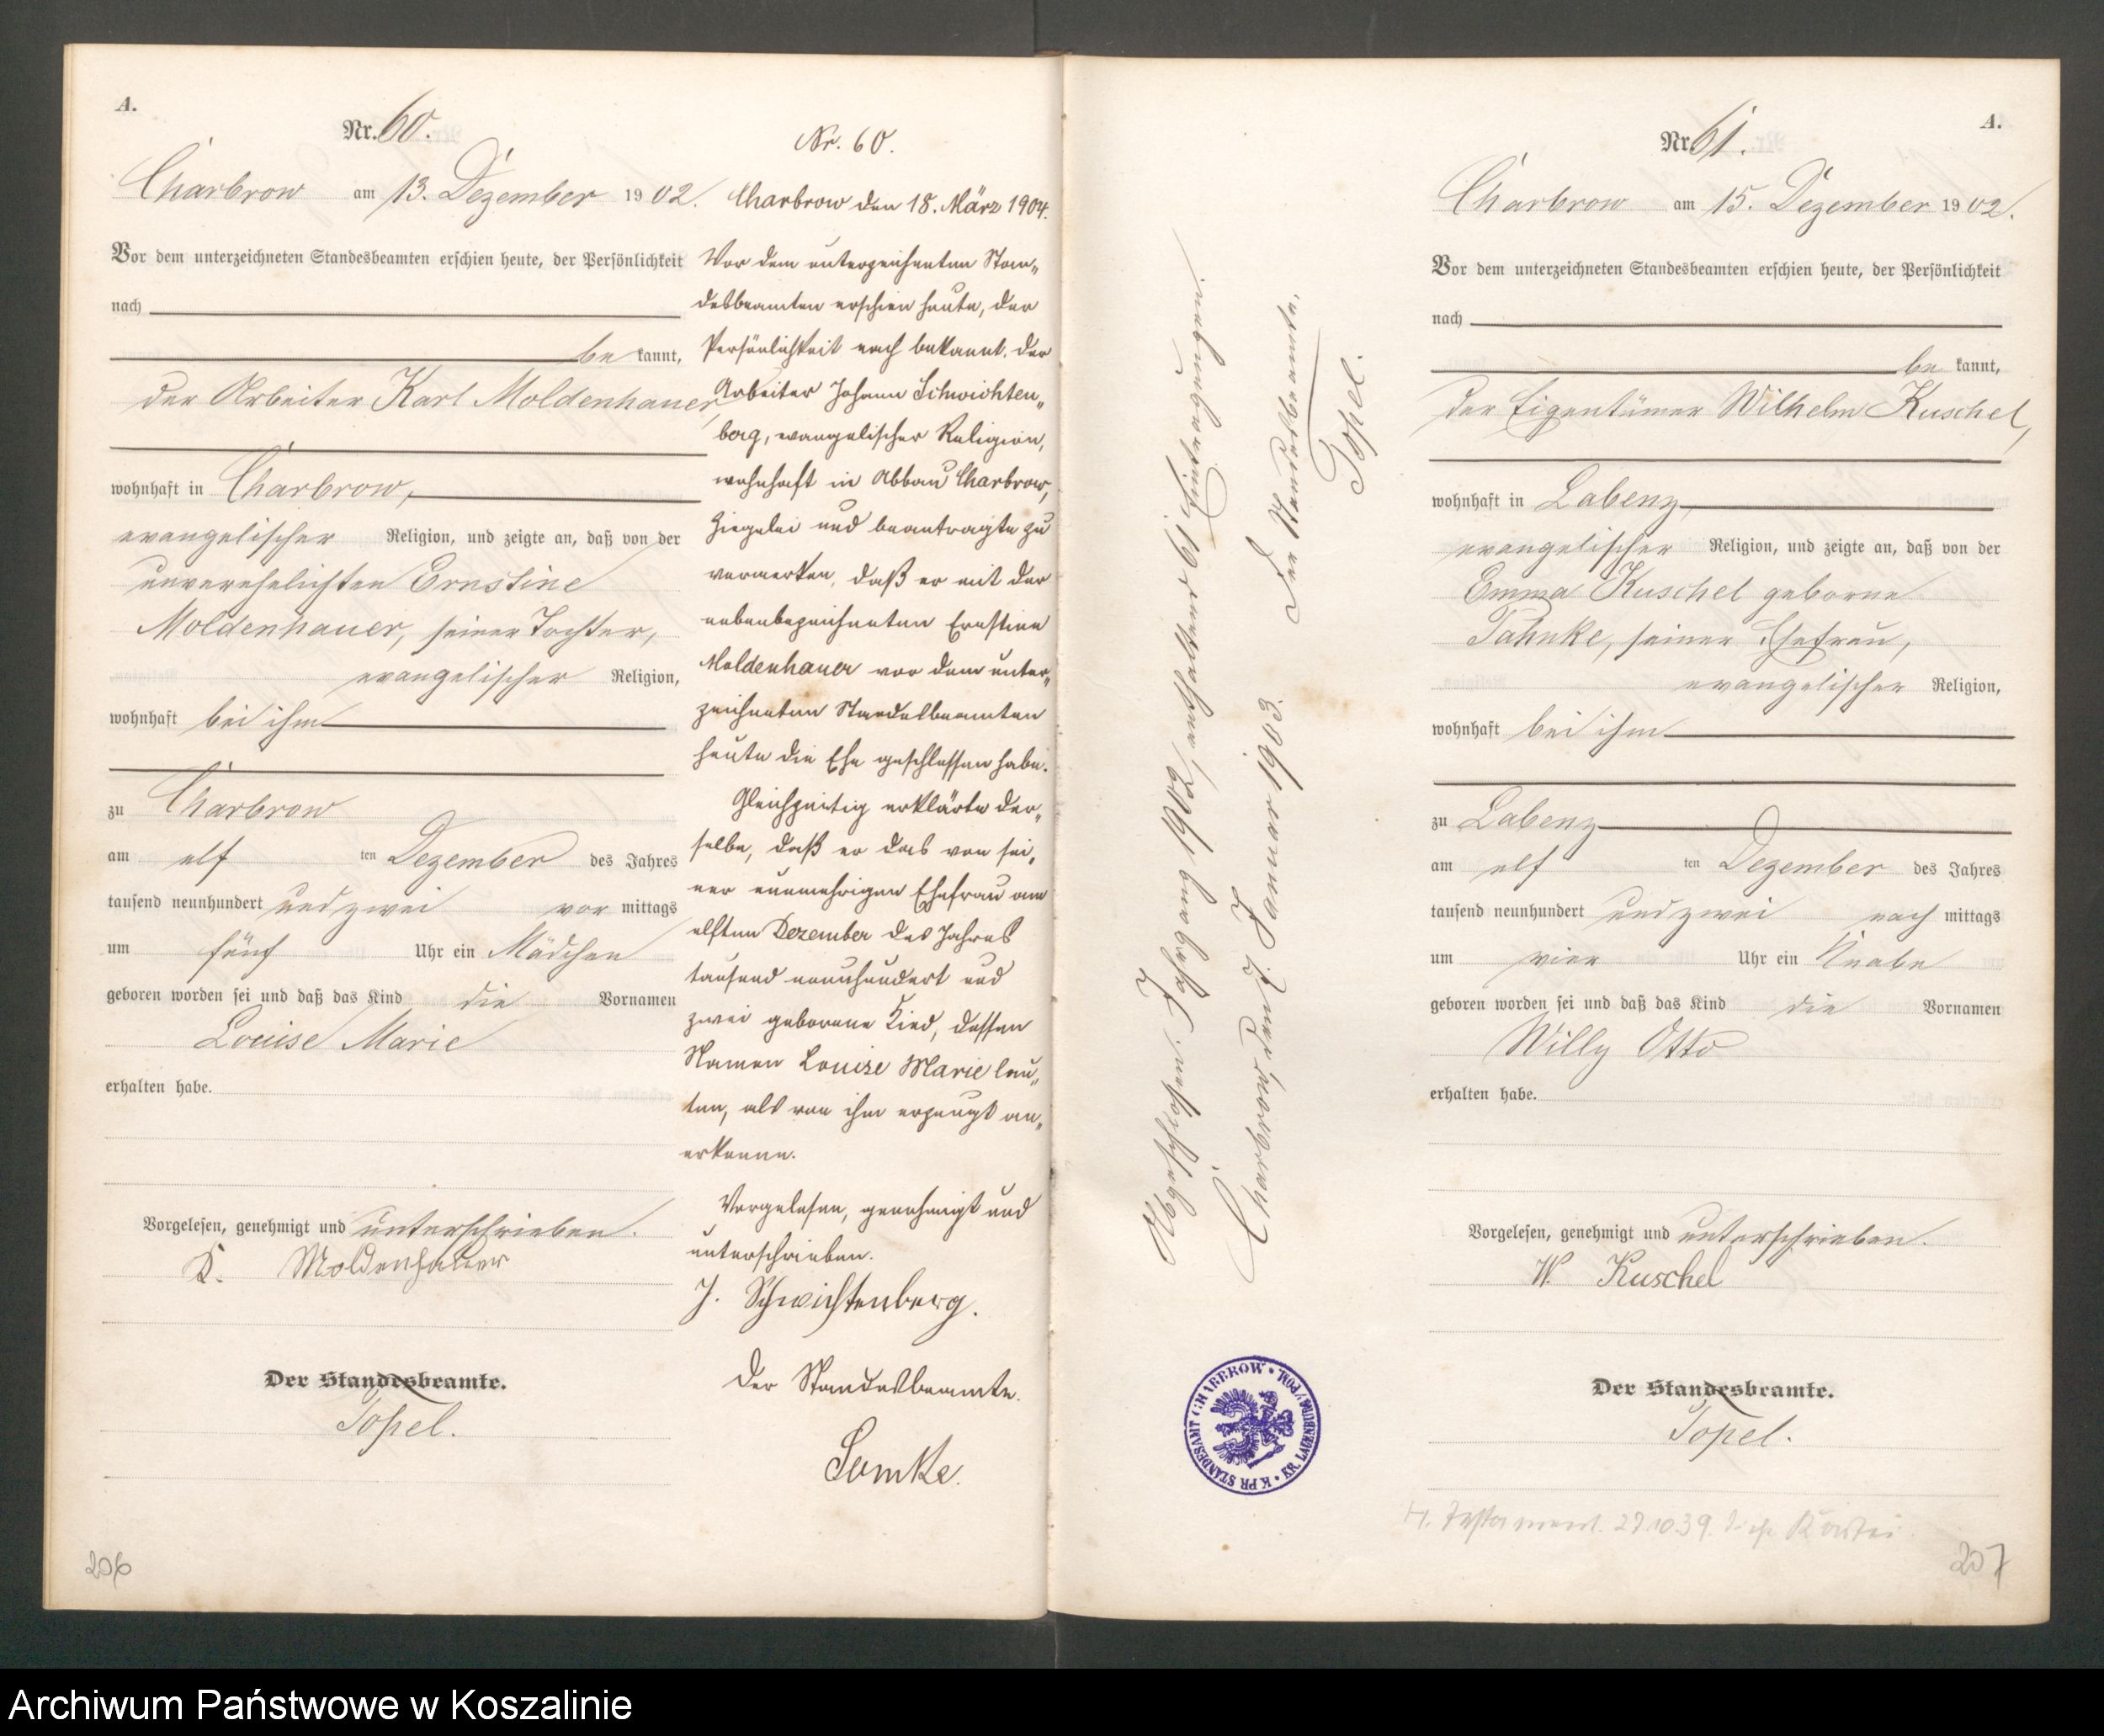 A.
Nr. 60.
Charbrow am 13. Dezember 1902.
Vor dem unterzeichneten Standesbeamten erschien heute, der Persönlichkeit
nach
be kannt,
der Arbeiter Karl Moldenhauer,
wohnhaft in Charbrow,
evangelischer Religion, und zeigte an, daß von der
unverehelichten Ernstine
Moldenhauer, seiner Tochter,
evangelischer Religion,
wohnhaft bei ihm
zu Charbrow
am elf ten Dezember des Jahres
tausend neunhundert und zwei vor mittags
um fünf Uhr ein Mädchen
geboren worden sei und daß das Kind die Vornamen
Louise Marie
erhalten habe.
Vorgelesen, genehmigt und unterschrieben.
K. Moldenhauer
Der Standesbeamte.
Topel.
206
Nr. 60.
Charbrow den 18. März 1904.
Vor dem unterzeichneten Stan„
desbeamten erschien heute, der
Persönlichkeit nach bekannt, der
Arbeiter Johann Schwichten„
berg, evangelischer Religion,
wohnhaft in Abbau Charbrow,
Ziegelei und beantragte zu
vermerken, daß er mit der
nebenbezeichneten Ernstine
Moldenhauer vor dem unter„
zeichneten Standesbeamten
heute die Ehe geschlossen habe.
Gleichzeitig erklärte der„
selbe, daß er das von sei„
ner nunmehrigen Ehefrau am
elften Dezember des Jahres
tausend neunhundert und
zwei geborene Kind, dessen
Namen Louise Marie lau„
ten, als von ihm erzeugt an„
erkenne.
Vorgelesen, genehmigt und
unterschrieben.
J. Schwichtenberg.
Der Standesbeamte.
Lemke.
Abgeschlossen. Jahrgang 1902, enthaltend 61 Eintragungen.
Charbrow, den 7. Januar 1903.
Der Standesbeamte.
Topel.
K. PR. STANDESAMT CHARBROW • KR. LAUENBURG/POM.
A.
Nr. 61.
Charbrow am 15. Dezember 1902.
Vor dem unterzeichneten Standesbeamten erschien heute, der Persönlichkeit
nach
be kannt,
der Eigentümer Wilhelm Kuschel,
wohnhaft in Labenz
evangelischer Religion, und zeigte an, daß von der
Emma Kuschel geborne
Tahnke, seiner Ehefrau,
evangelischer Religion,
wohnhaft bei ihm
zu Labenz
am elf ten Dezember des Jahres
tausend neunhundert und zwei nach mittags
um vier Uhr ein Knabe
geboren worden sei und daß das Kind die Vornamen
Willy Otto
erhalten habe.
Vorgelesen, genehmigt und unterschrieben.
W Kuschel
Der Standesbeamte.
Topel.
H. Testament. 27.10.39. Kartei.
207
Archiwum Państwowe w Koszalinie